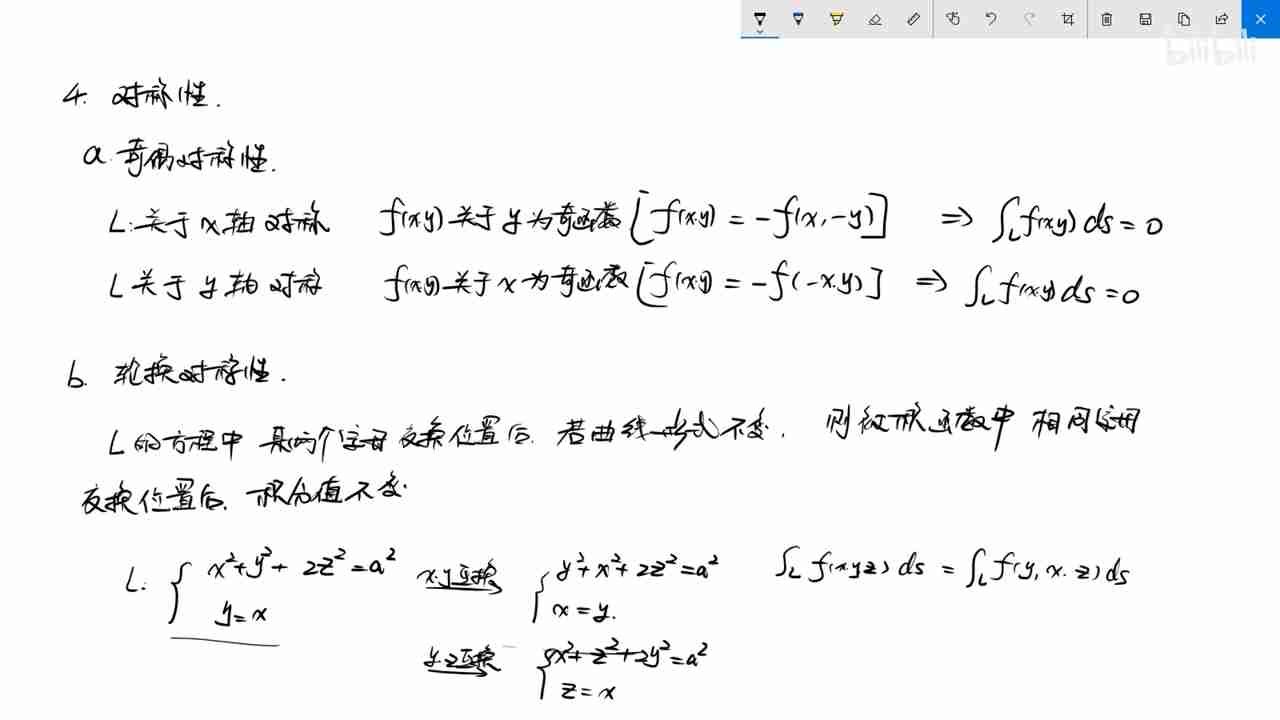 bilibili
4. 对称性.
a. 奇偶对称性.
L: 关于 x 轴 对称 f(x,y) 关于 y 为奇函数 [f(x,y) = -f(x, -y)] ⇒ ∫_L f(x,y) ds = 0
L 关于 y 轴 对称 f(x,y) 关于 x 为奇函数 [f(x,y) = -f(-x,y)] ⇒ ∫_L f(x,y) ds = 0
b. 轮换对称性.
L 的方程中 某两个字母 交换位置后. 若曲线形式不变, 则被积函数中 相同字母
交换位置后, 积分值不变.
L: { x²+y²+2z²=a² x.y互换 { y²+x²+2z²=a² ∫_L f(x,y,z) ds = ∫_L f(y, x, z) ds
y=x x=y.
y.z互换 { x²+z²+2y²=a²
z=x